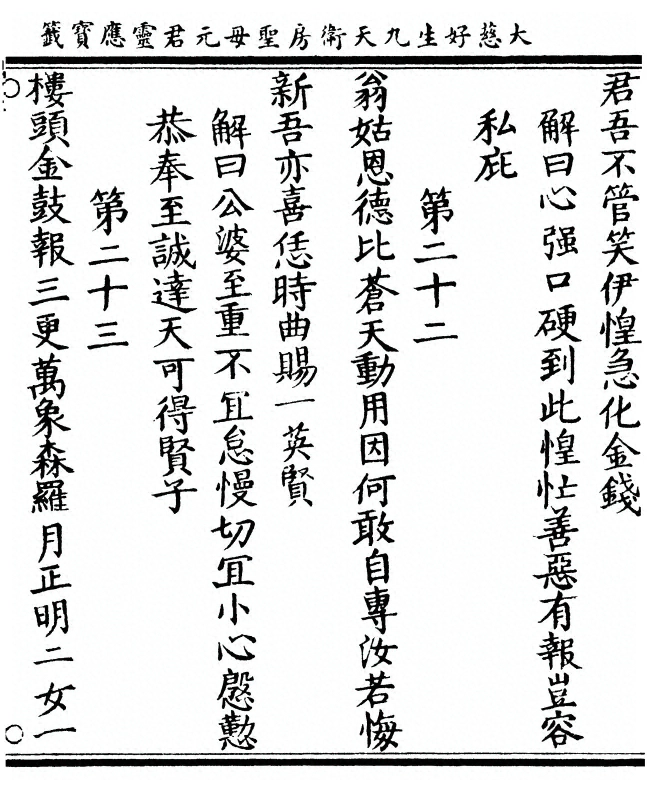 大慈好生九天衛房聖母元君靈應寶籤
君吾不管笑伊惶急化金錢
解曰心强口硬到此惶忙善惡有報豈容
私庇
第二十二
翁姑恩德比蒼天動用因何敢自專汝若悔
新吾亦喜恁時曲賜一英賢
解曰公婆至重不冝怠慢切冝小心慇懃
恭奉至誠達天可得賢子
第二十三
樓頭金鼓報三更萬象森羅月正明二女一